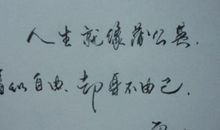 人生就像蒲公英.
看似自由.却身不由己.